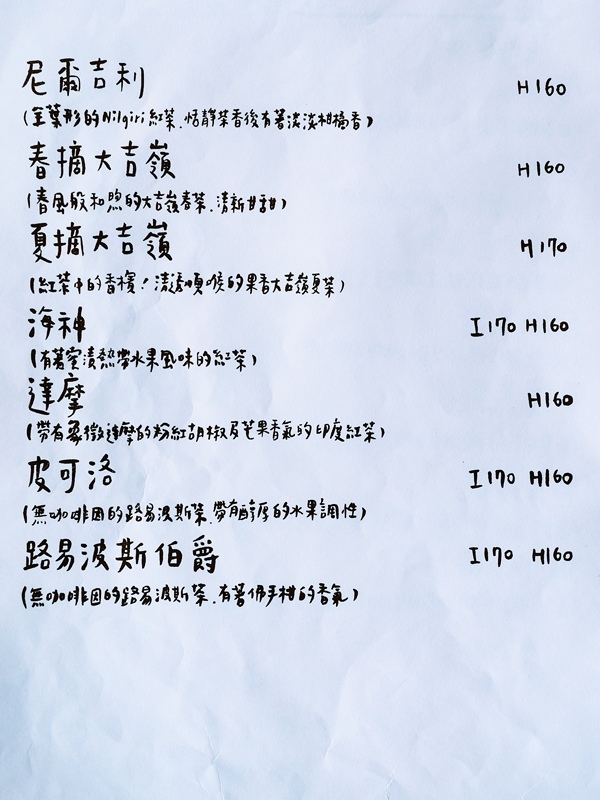 尼爾吉利 H160
(全葉形的Nilgiri紅茶.恬靜茶香後有著淡淡柑橘香)
春摘大吉嶺 H160
(春風般和煦的大吉嶺春茶.清新甘甜)
夏摘大吉嶺 H170
(紅茶中的香檳!清透順喉的果香大吉嶺夏茶)
海神 I170 H160
(有著蜜漬熱帶水果風味的紅茶)
達摩 H160
(帶有象徵達摩的粉紅胡椒及芒果香氣的印度紅茶)
皮可洛 I170 H160
(無咖啡因的路易波斯茶.帶有醇厚的水果調性)
路易波斯伯爵 I170 H160
(無咖啡因的路易波斯茶.有著佛手柑的香氣)